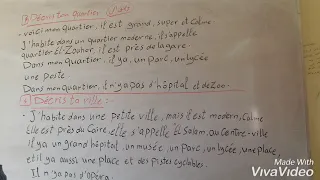 Décris ton quartier :-
- voici mon quartier, il est grand, super et calme
J'habite dans un quartier moderne, il s'appelle
quartier El Zouhor, il est près de la gare
Dans mon quartier, il ya, un parc, un lycée
une poste.
Dans mon quartier, il n'ya pas d'hôpital et de zoo.
Décris ta ville :-
- J'habite dans une petite ville, mais il est modern, calme
Elle est près du Caire, elle s'appelle El Salam, au centre-ville
il ya un grand hôpital, un musée, un parc, un lycée, une place,
et il ya aussi une place et des pistes cyclables.
Il n'ya pas d'opéra.
Made With
VivaVideo